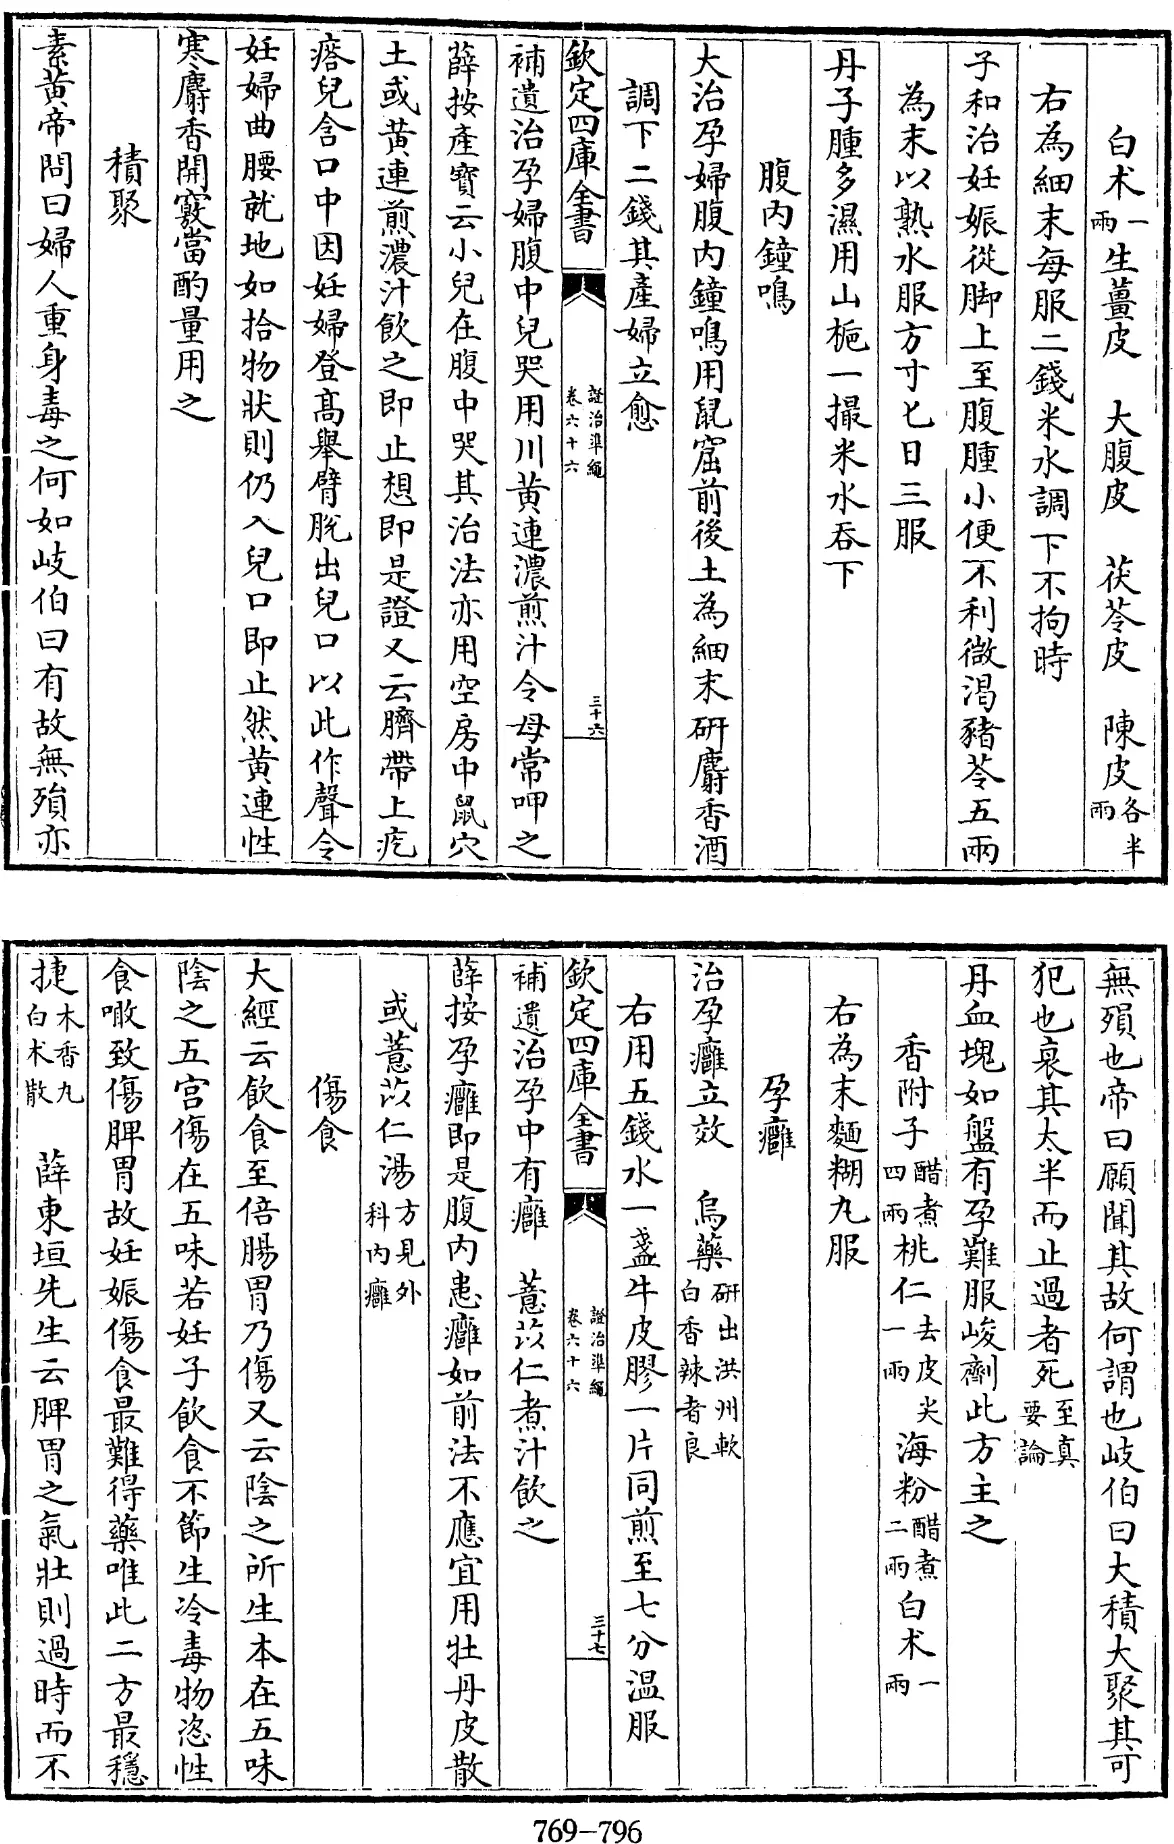 白术一兩生薑皮　大腹皮　茯苓皮　陳皮各半兩
右為細末每服二錢米水調下不拘時
子和治妊娠從脚上至腹腫小便不利微渴豬苓五兩
為末以熟水服方寸匕日三服
丹子腫多濕用山梔一撮米水吞下
腹内鐘鳴
大治孕婦腹内鐘鳴用鼠窟前後土為細末研麝香酒
調下二錢其產婦立愈
欽定四庫全書
證治準繩
卷六十六
三十六
補遺治孕婦腹中兒哭用川黄連濃煎汁令母常呷之
薛按產寶云小兒在腹中哭其治法亦用空房中鼠穴
土或黄連煎濃汁飲之即止想即是證又云臍帶上疙
瘩兒含口中因妊婦登高舉臂脫出兒口以此作聲令
妊婦曲腰就地如拾物狀則仍入兒口即止然黄連性
寒麝香開竅當酌量用之
積聚
素黄帝問曰婦人重身毒之何如岐伯曰有故無殞亦
無殞也帝曰願聞其故何謂也岐伯曰大積大聚其可
犯也衰其太半而止過者死至真要論
丹血塊如盤有孕難服峻劑此方主之
香附子醋煮四兩桃仁去皮尖一兩海粉醋煮二兩白术一兩
右為末麵糊丸服
孕癰
治孕癰立效　烏藥研出洪州軟白香辣者良
右用五錢水一盞牛皮膠一片同煎至七分温服
欽定四庫全書
證治準繩
卷六十六
三十七
補遺治孕中有癰　薏苡仁煮汁飲之
薛按孕癰即是腹内患癰如前法不應宜用牡丹皮散
或薏苡仁湯方見外科内癰
傷食
大經云飲食至倍腸胃乃傷又云陰之所生本在五味
陰之五宫傷在五味若妊子飲食不節生冷毒物恣性
食噉致傷脾胃故妊娠傷食最難得藥唯此二方最穩
捷木香丸白术散　薛東垣先生云脾胃之氣壯則過時而不
769-796